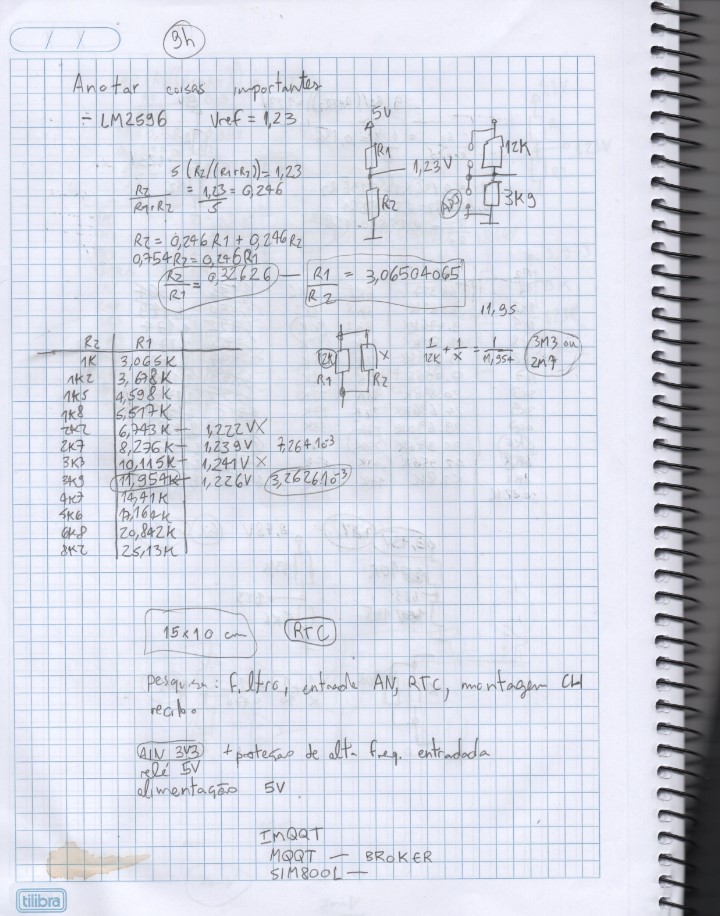 / /
9h
Anotar coisas importantes
- LM2596 Vref = 1,23
5V
R1
1,23V
R2
12K
3K9
ADJ
5(R2/(R1+R2)) = 1,23
R2/(R1+R2) = 1,23/5 = 0,246
R2 = 0,246 R1 + 0,246 R2
0,754 R2 = 0,246 R1
R2/R1 = 0,32626 — R1/R2 = 3,06504065
11,95
12K
R1
X
R2
1/12K + 1/X = 1/11,954
3M3 ou
2M7
R2 R1
1K 3,065K
1K2 3,678K
1K5 4,598K
1K8 5,517K
2K2 6,743K — 1,222V X
2K7 8,276K — 1,239V 7,264.10-3
3K3 10,115K — 1,241V X
3K9 11,954K — 1,226V 3,262610-3
4K7 14,41K
5K6 17,164K
6K8 20,842K
8K2 25,13K
15x10 cm RTC
pesquisa: Filtro, entrada AN, RTC, montagem CH
recibo
AIN 3V3 + proteção de alta freq. entradada
relé 5V
alimentação 5V
IMQQT
MQQT — BROKER
SIM800L —
tilibra